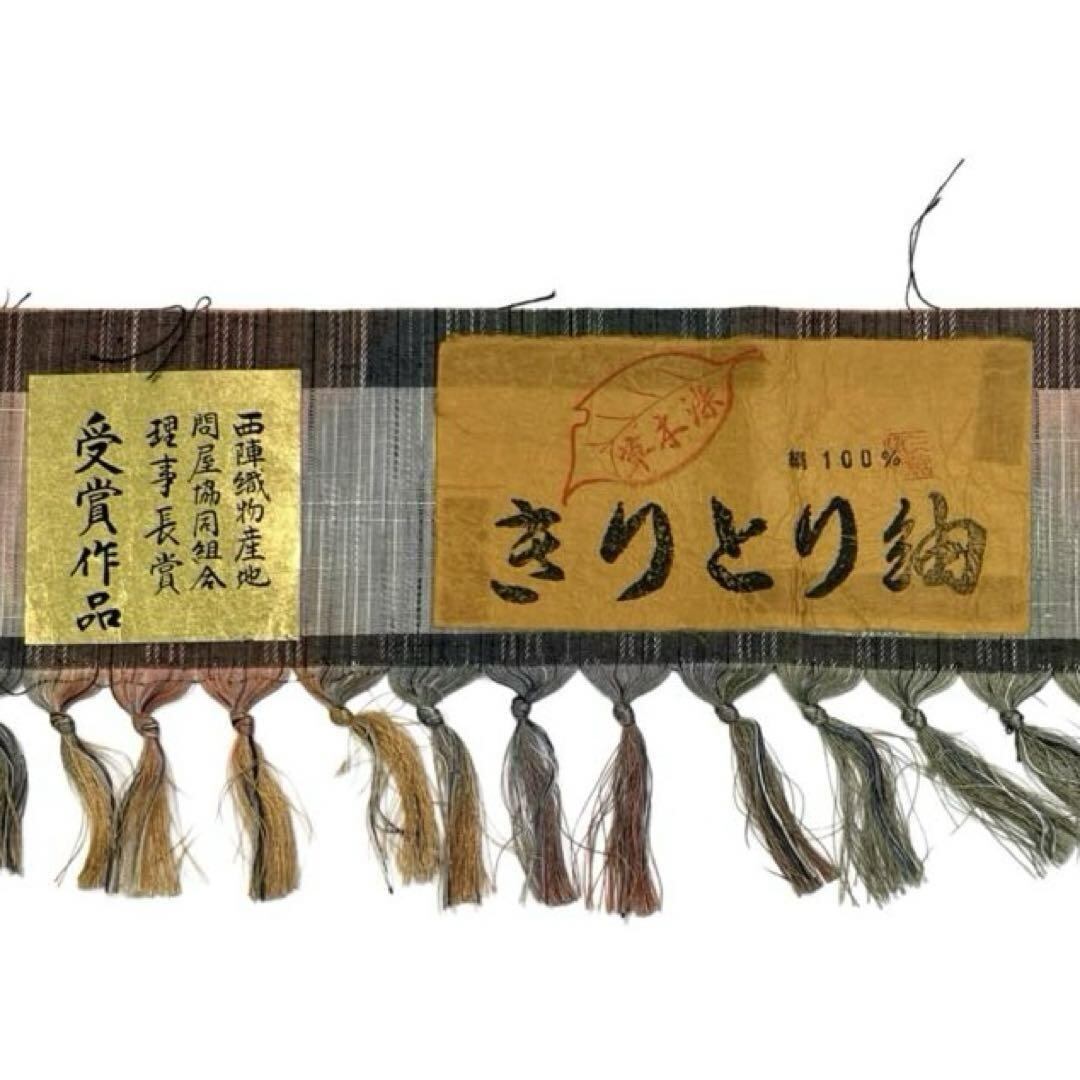 西陣織物産地
問屋協同組合
理事長賞
受賞作品
絹100%
きりとり紬